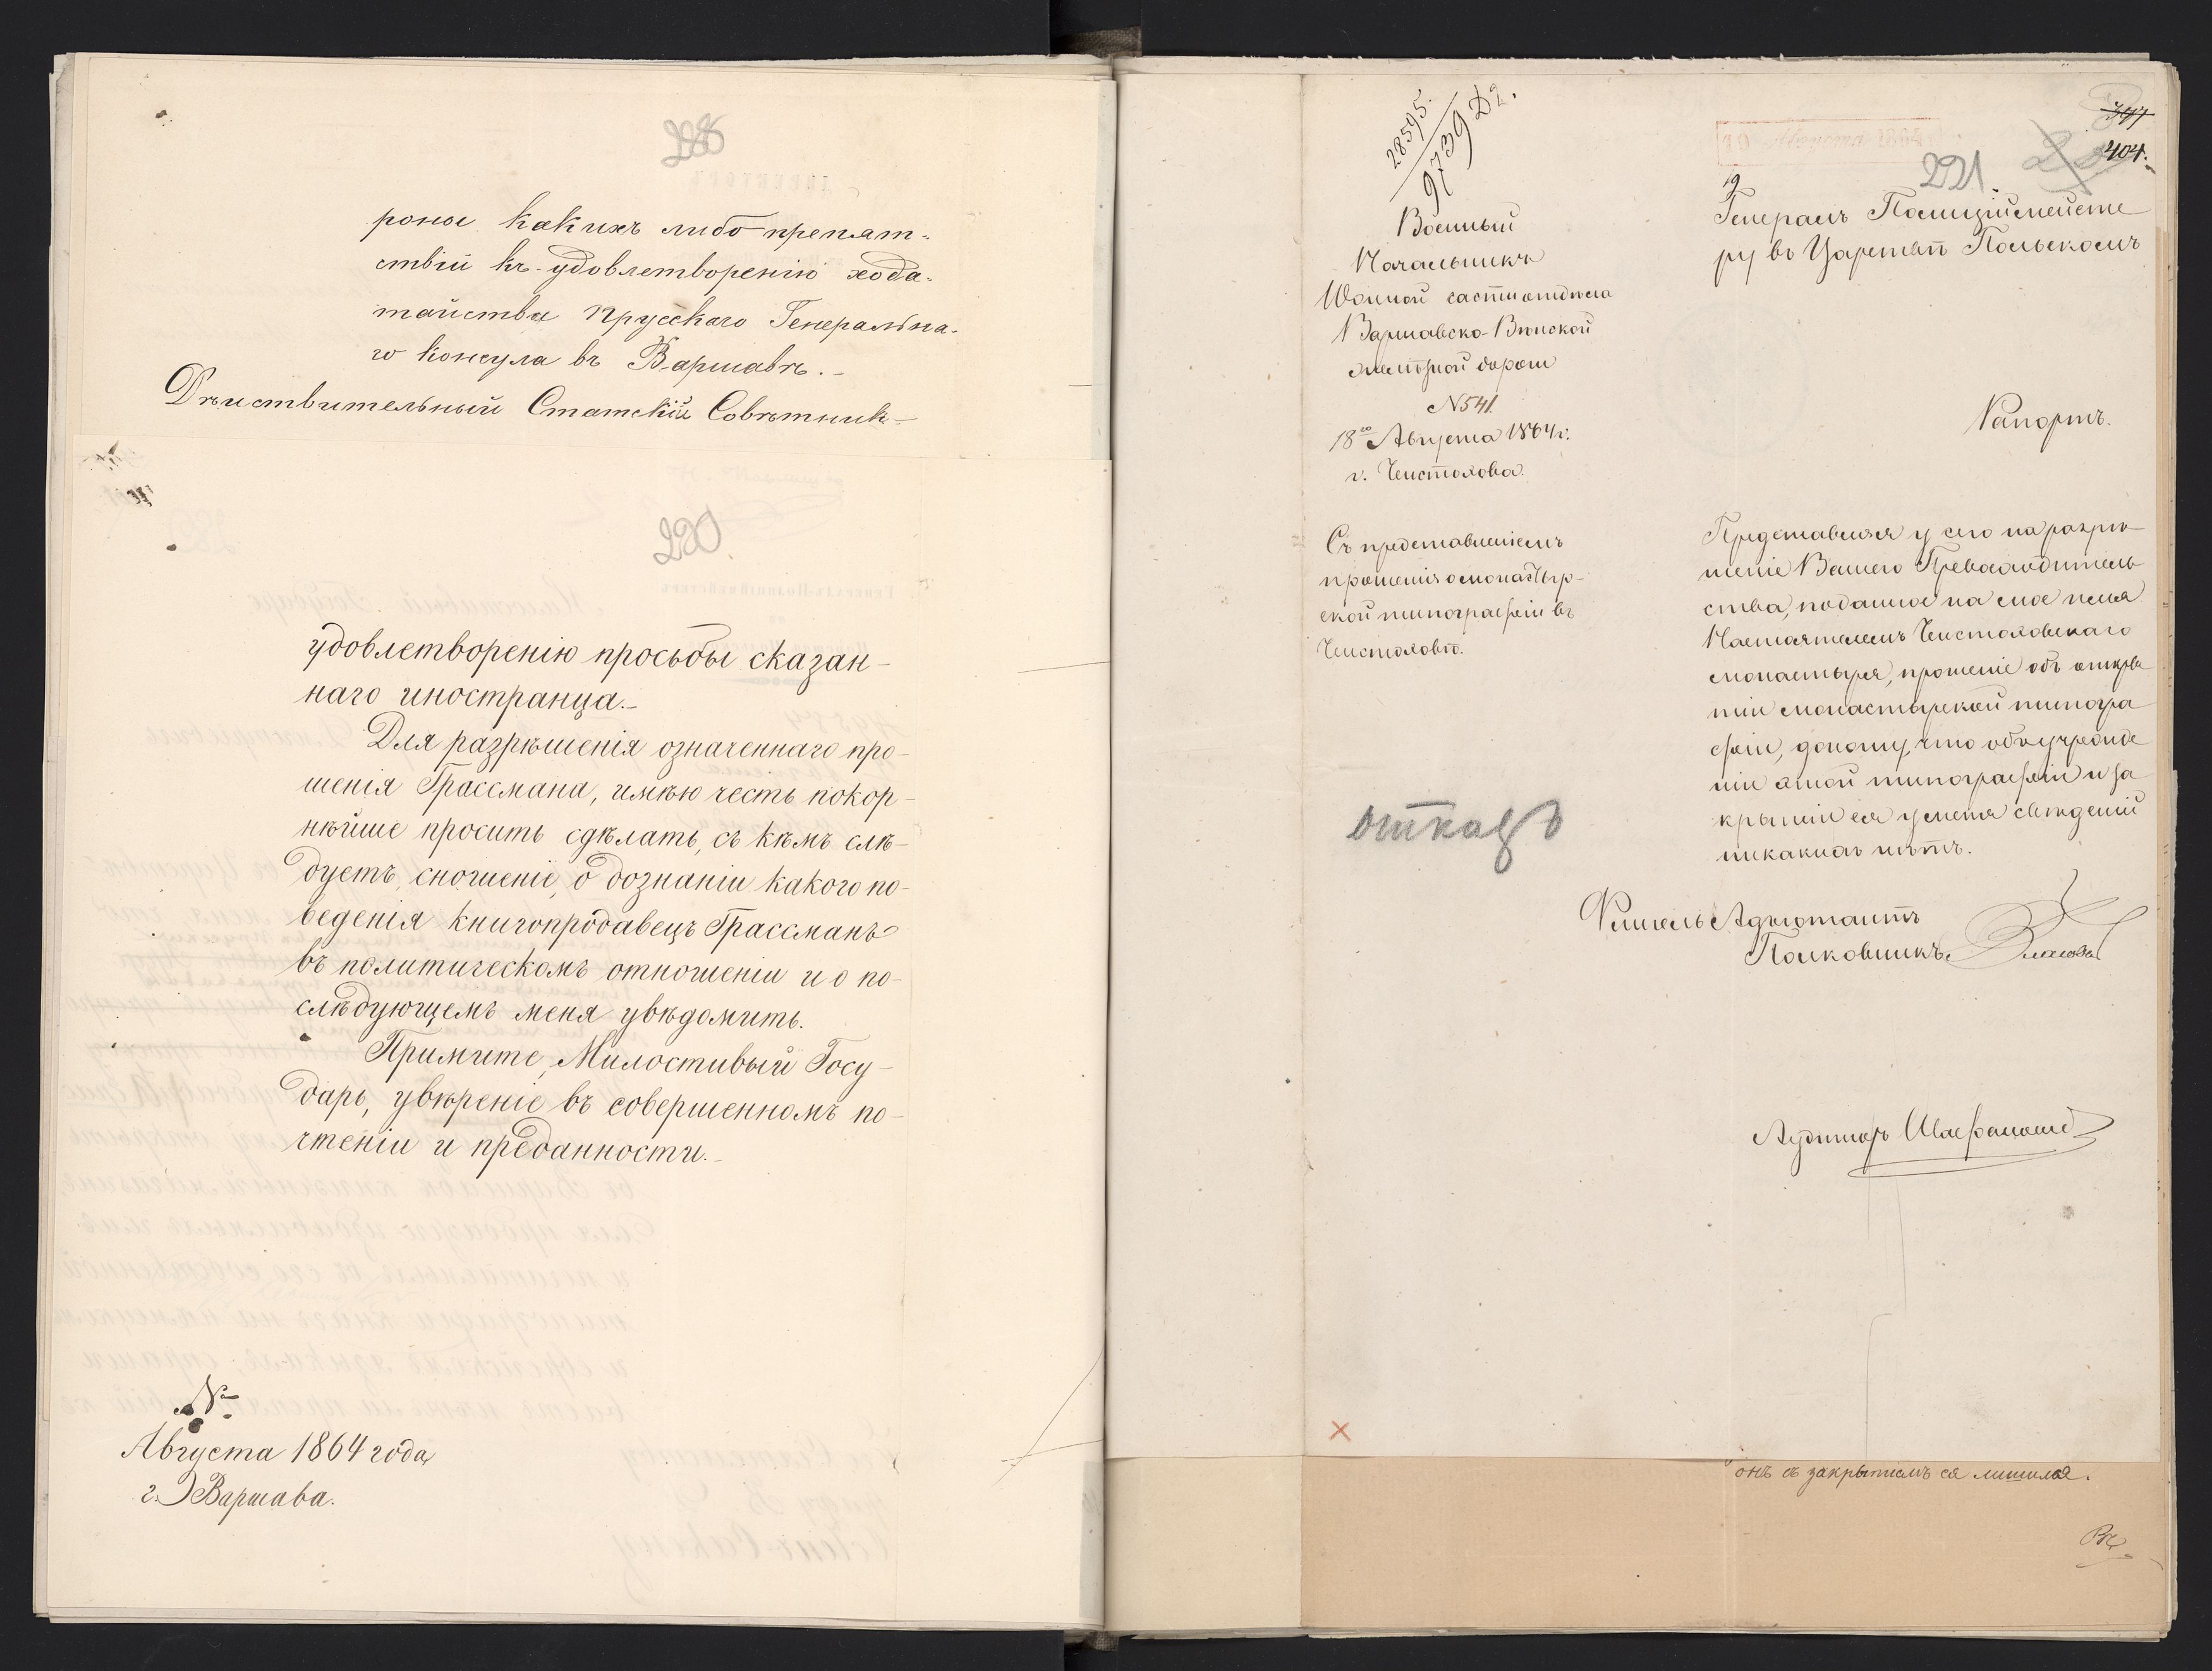 роны какихъ либо препят-
ствій къ удовлетворенію хода-
тайства Прусскаго Генеральна-
го Консула въ Варшавѣ.
Дѣйствительный Статскій Совѣтник
220.
удовлетворенію просьбы сказан-
наго иностранца.
Для разрѣшенія означеннаго про-
шенія Грассмана, имѣю честь покор-
нѣйше просить сдѣлать, съ кѣмъ слѣ-
дуетъ, сношеніе, о дознаніи какого по-
веденія книгопродавецъ Грассманъ
въ политическомъ отношеніи и о по-
слѣдующемъ меня увѣдомить.
Примите, Милостивый Госу-
дарь, увѣреніе въ совершенномъ по-
чтеніи и преданности.
№
Августа 1864 года
г. Варшава.
28595.
9739 Д2.
404.
221
Военный
Начальникъ
части отдѣла
Варшавско-Вѣнской
желѣзной дороги
№ 541
18го Августа 1864 г.
г. Ченстохова.
Генералъ Полиціймейсте
ру въ Царствѣ Польскомъ
Рапортъ.
Съ представленіемъ
прошенія о монастыр-
ской типографіи въ
Ченстоховѣ.
отказъ
Представляя у сего на разрѣ-
шеніе Вашего Превосходитель
ства, поданное на мое имя
Настоятелемъ Ченстоховскаго
монастыря, прошеніе объ откры
тіи монастырской типогра
фіи, доношу, что объ учрежде
ніи этой типографіи и за
крытіи ея у меня свѣденій
никакихъ нѣтъ.
Флигель Адъютантъ
Полковникъ
Аудиторъ
онъ съ закрытіемъ ея лишился.